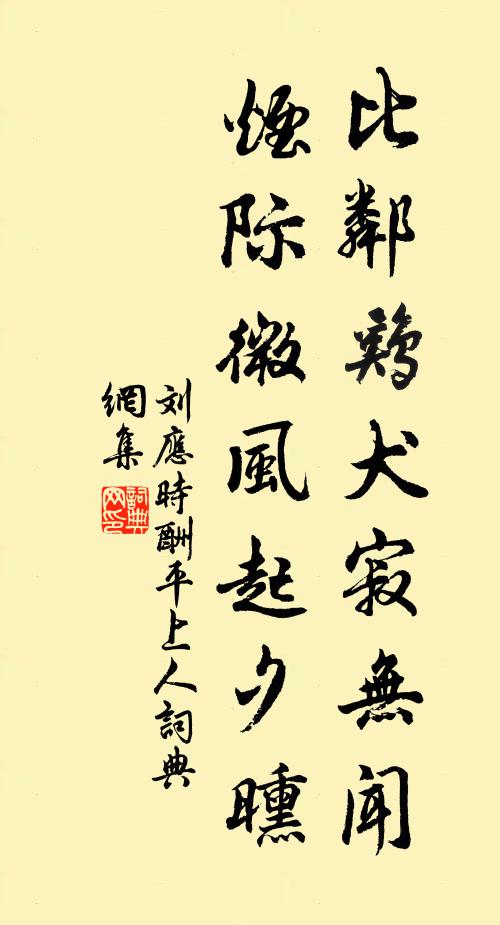 比鄰鷄犬寂無聞
煙际微風起夕曛
刘應時酬平上人詞典
網集
詞典
网印